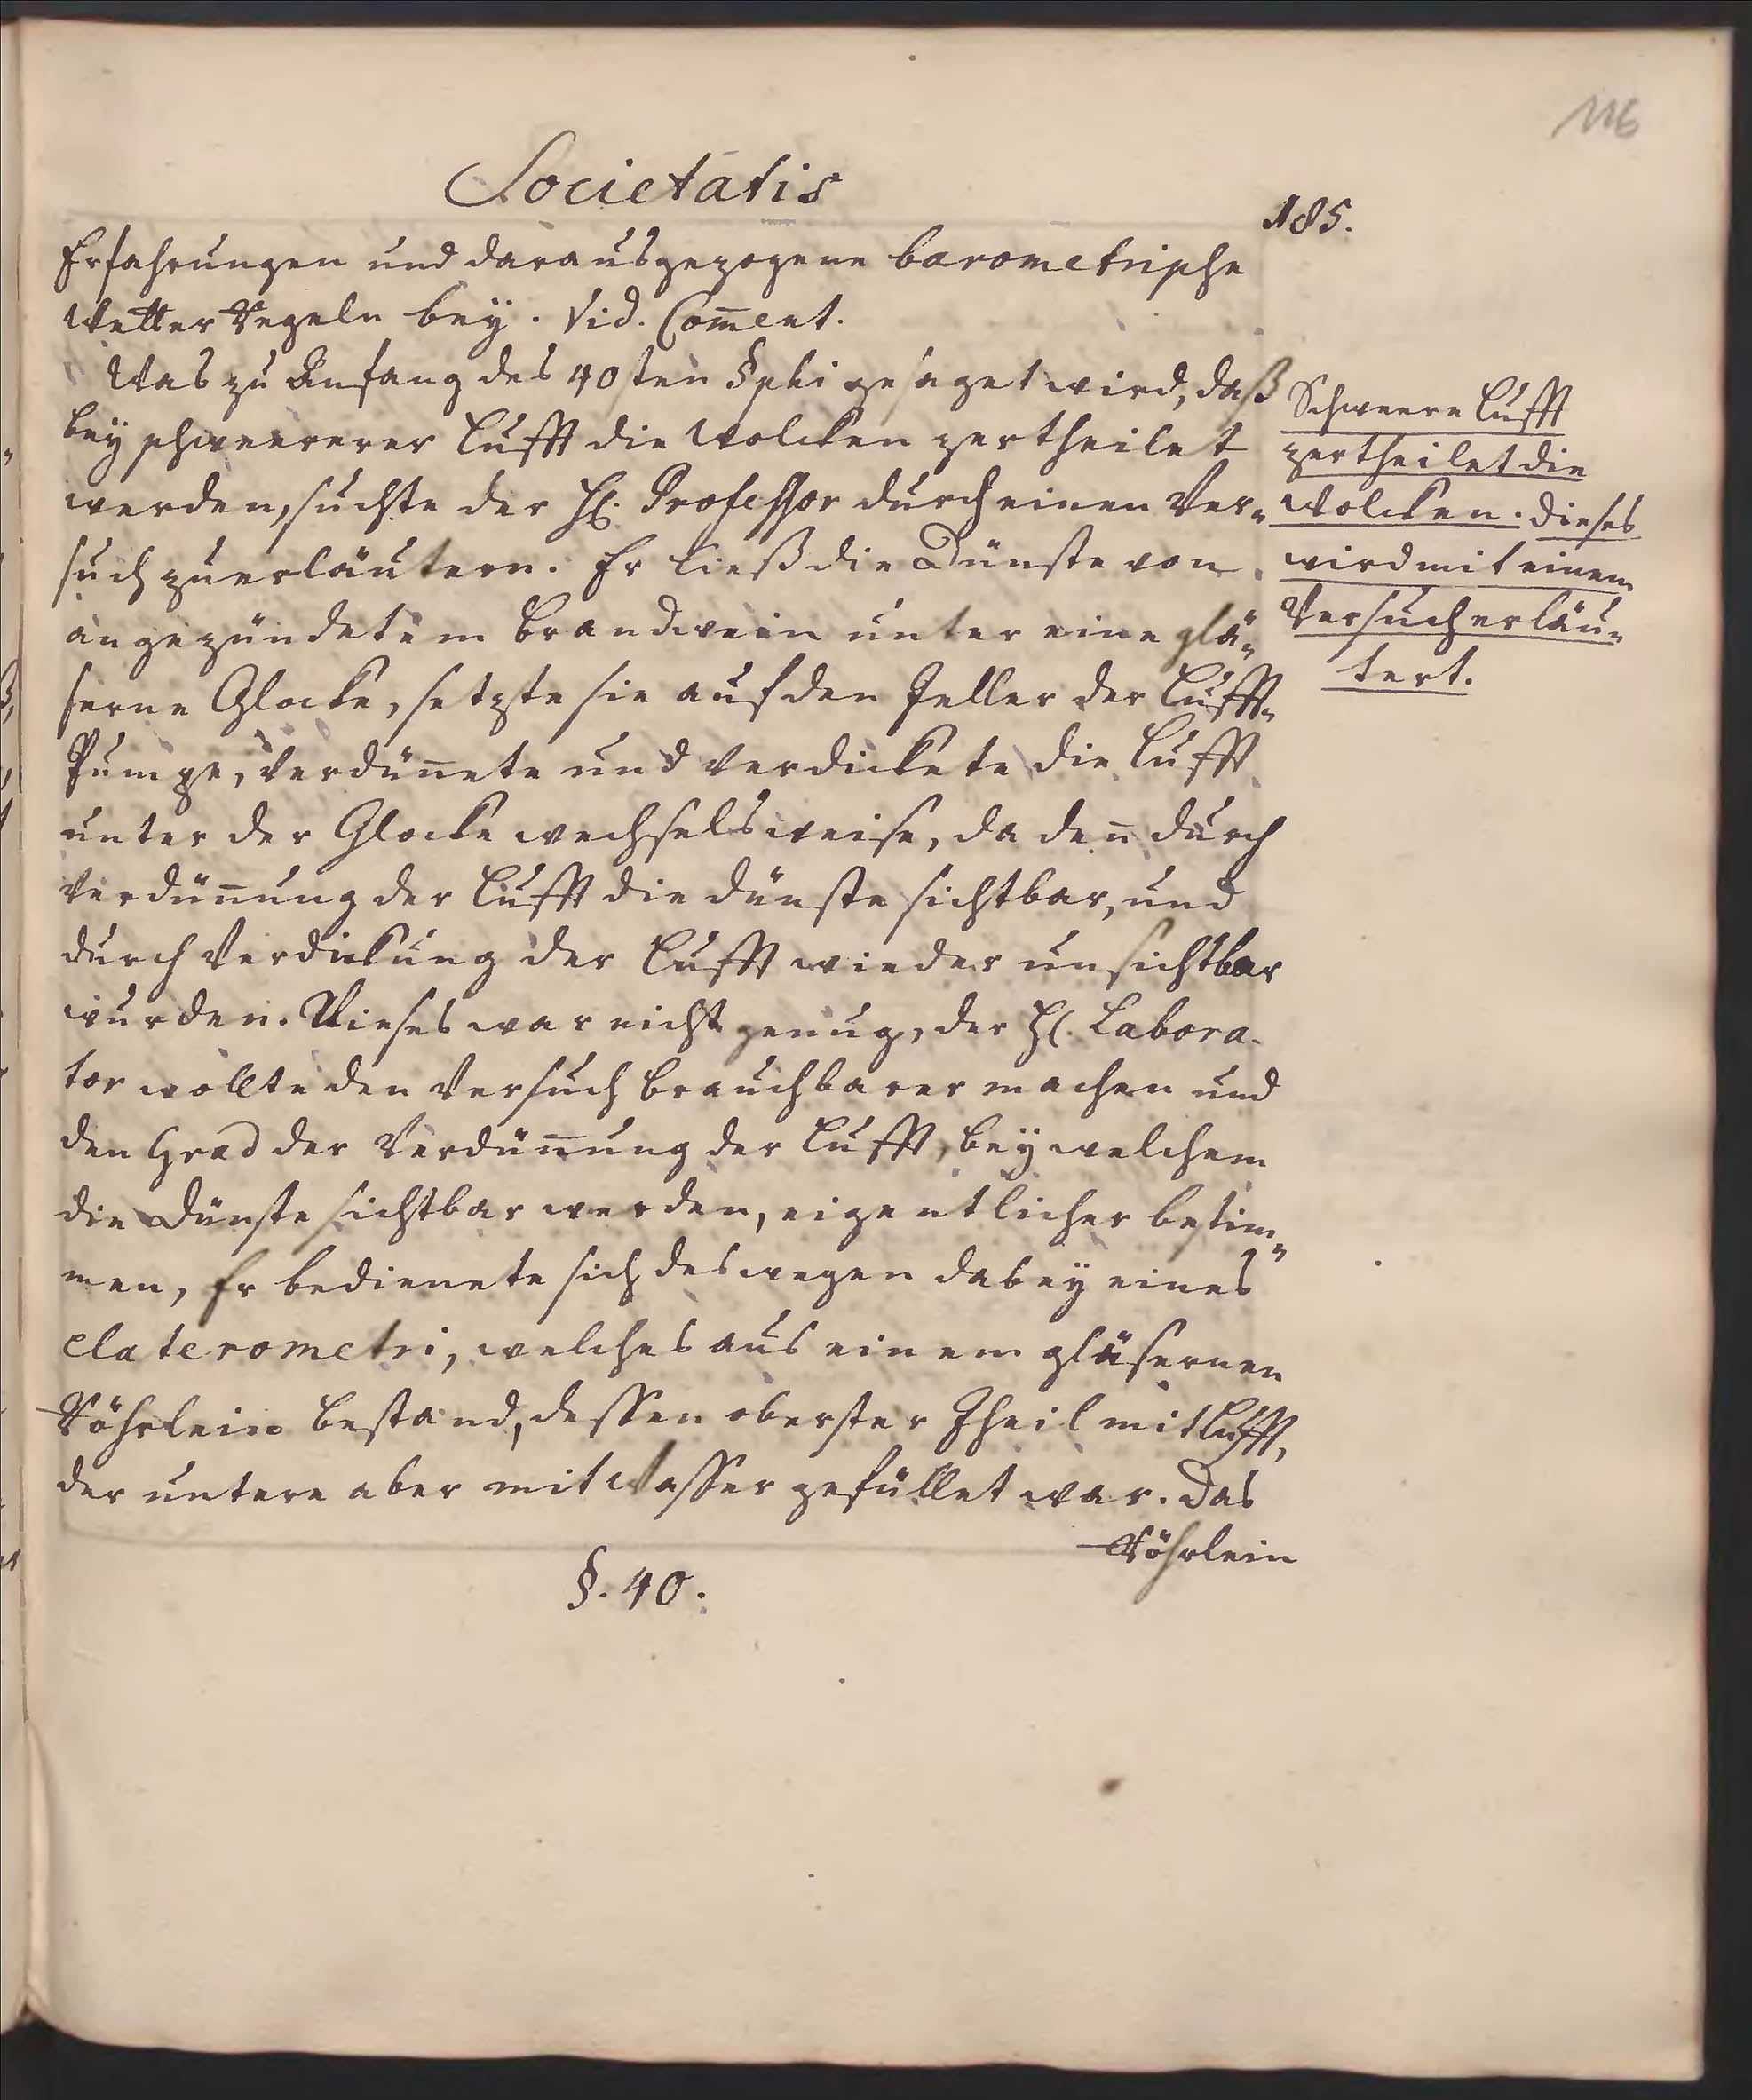 116
Societatis
185.
Erfahrungen und darausgezogene barometrische
Wetter Regeln bey. Vid. Com̄ent.
Was zu Anfang des 40sten §phi gesaget wird, daß
bey schweererer Lufft die Wolcken zertheilet
werden, suchte der H. Professor durch einen Ver-
such zu erläutern. Er ließ die Dünste von
angezündetem Brandwein unter eine glä-
serne Glocke, setzte sie auf den Teller der Lufft-
Pumpe, verdün̄ete und verdickete die Lufft
unter der Glocke wechselsweise, da den̄ durch
Verdün̄ung der Lufft die Dünste sichtbar, und
durch Verdickung der Lufft wieder unsichtbar
wurden. Dieses war nicht genug, der H. Labora-
tor wollte den Versuch brauchbarer machen und
den Grad der Verdün̄ung der Lufft, bey welchem
die Dünste sichtbar werden, eigentlicher bestim-
men, Er bedienete sich deswegen dabey eines
elaterometri, welches aus einem gläsernen
Röhrlein bestand, dessen oberster Theil mit Lufft,
der untere aber mit Wasser gefüllet war. Das
Röhrlein
§. 40.
Schweere Lufft
zertheilet die
Wolcken. Dieses
wird mit einem
Versuch erläu-
tert.